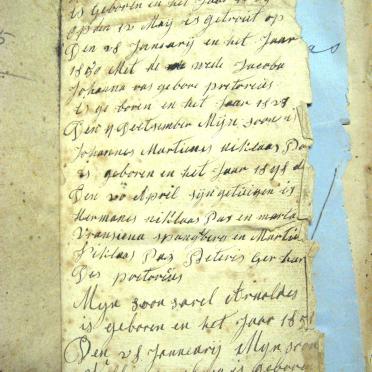 is geboren en het Jaar
op den 12 Maij is getroit op
Den 28 Januarij en het Jaar
1850 Met de wede Jacoba
Johanna vas gebore pretorius
is ge boren en het Jaar 1828
Den 9 Deitsember Mijn soon is
Johannes Martienes niklaas Vas
is geboren en het Jaar 18
Den 20 April sijn getuigen is
Hermanes niklaas Vas en maria
spangberg en Martin
Niklaas Vas Pieteres Ger har
Des pretoriüs
Mijn soon sarel Arnoldes
is geboren en het Jaar 185
Den 28 Jannearij Mijn soon
is geboren